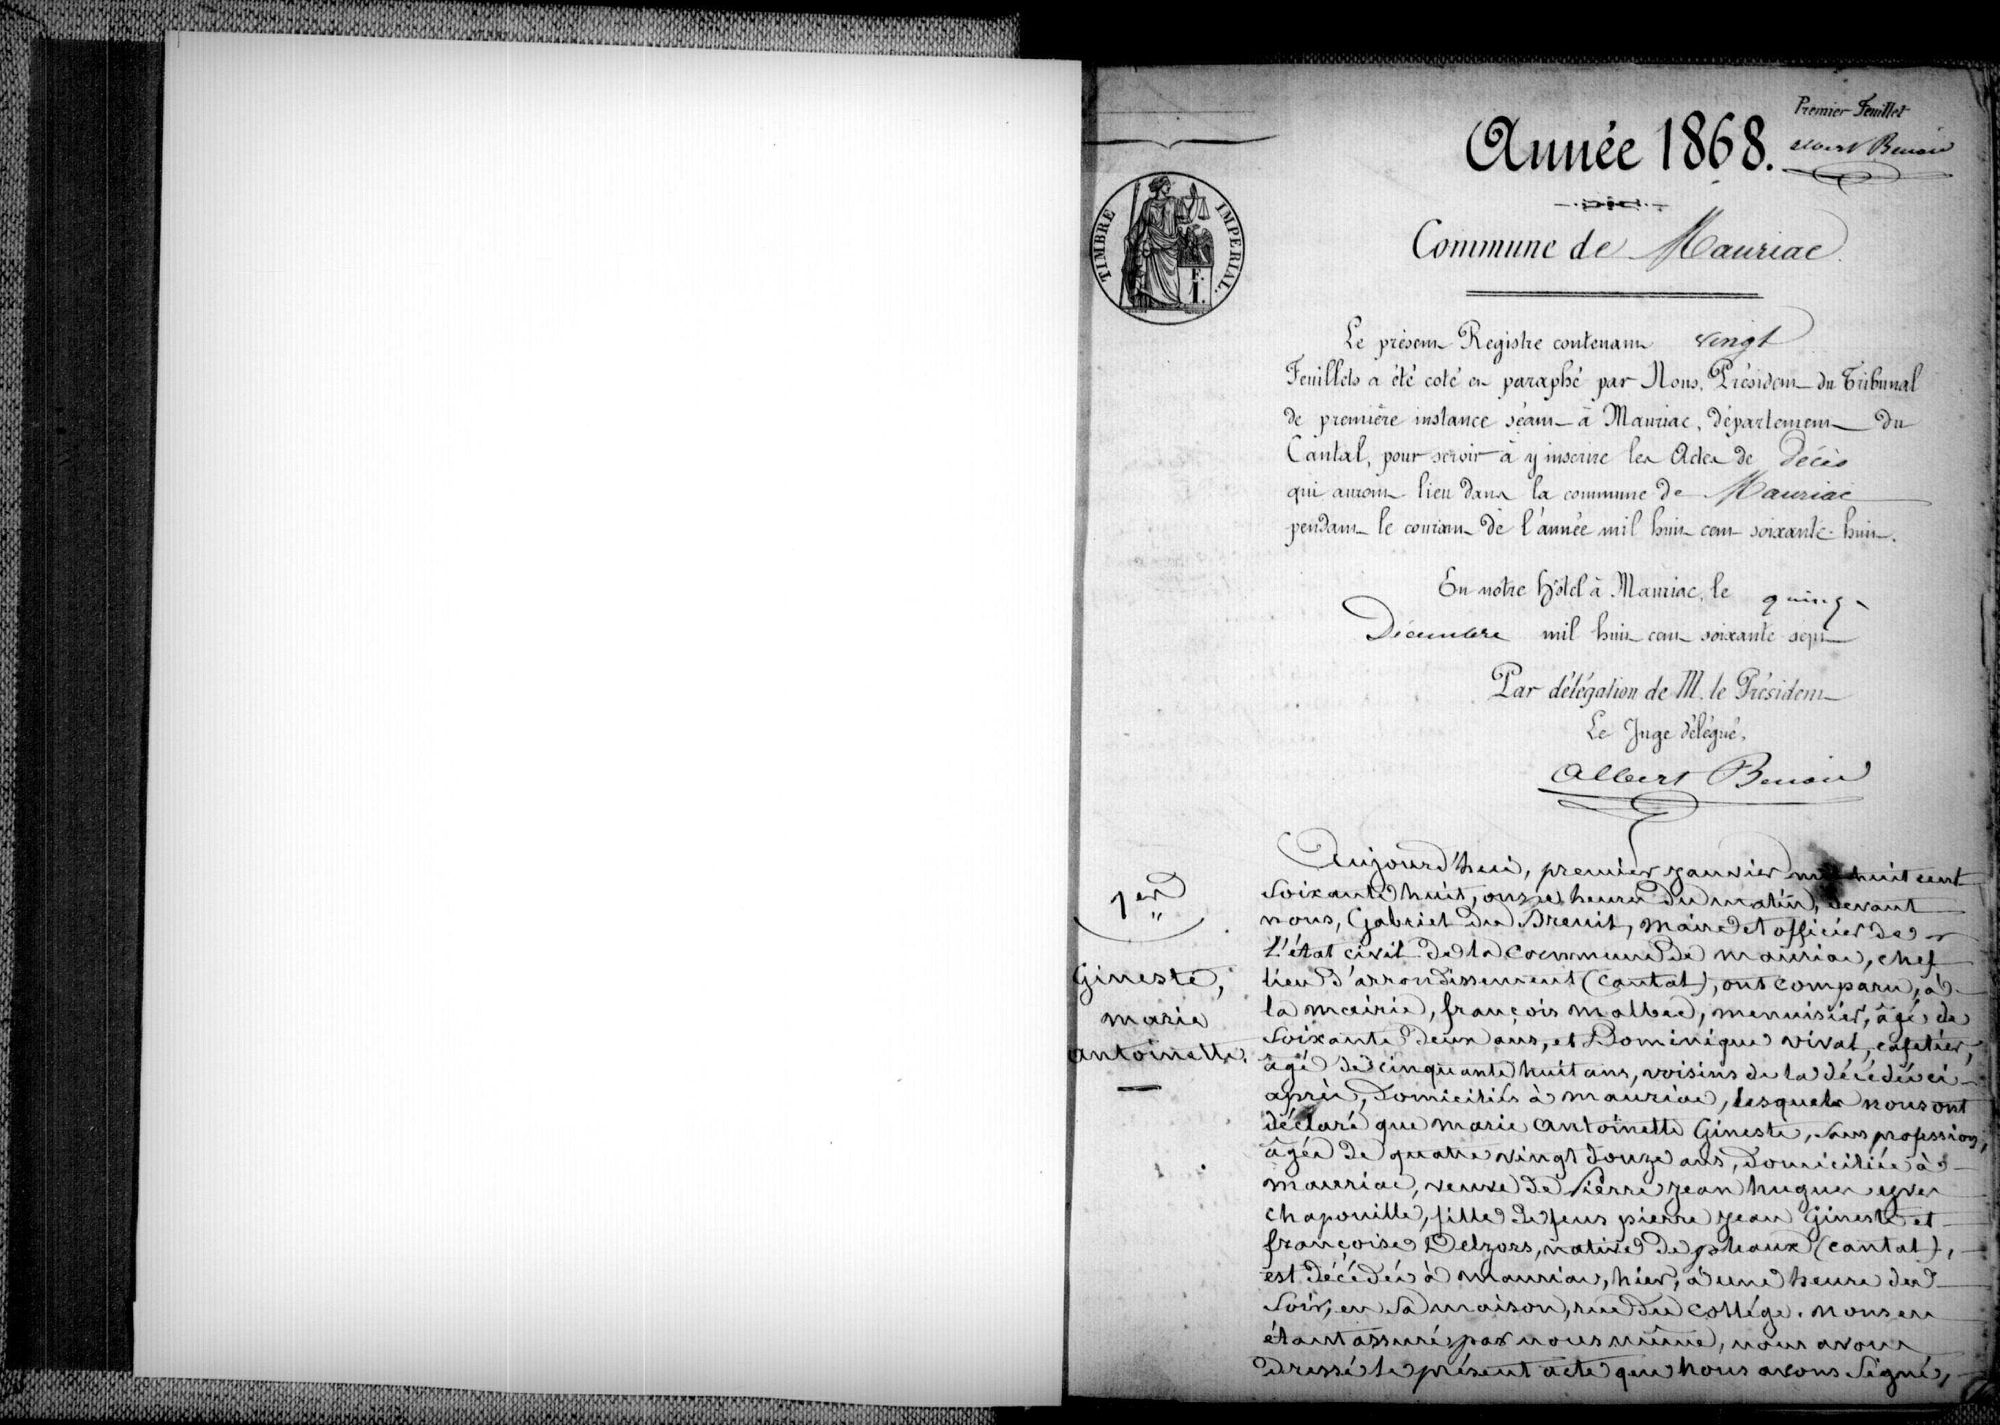 Premier Feuillet
Albert Benoid
Année 1868.
TIMBRE IMPÉRIAL.
E.
I.
Commune de Mauriac.
Le présent Registre contenant vingt
Feuillets a été coté et paraphé par Nous, Président du Tribunal
de première instance séant à Mauriac, département du
Cantal, pour servir à y inscrire les Actes de Décès
qui auront lieu dans la commune de Mauriac
pendant le courant de l'année mil huit cent soixante-huit.
En notre hôtel à Mauriac, le quinze
Décembre mil huit cent soixante sept
Par délégation de M. le Président
Le Juge délégué,
Albert Benoid
1er
Gineste,
marie
antoinette.
Aujourd'hui, premier janvier mil huit cent
soixante huit, onze heures du matin, devant
nous, Gabriel Du Breuil, maire et officier de
l'état civil de la commune de mauriac, chef
lieu d'arrondissement (cantal), ont comparu, à
la mairie, françois malbec, menuisier, âgé de
soixante deux ans, et Dominique vival, cafetier,
âgé de cinquante huit ans, voisins de la décédée ci
après, domiciliés à mauriac, lesquels nous ont
déclaré que marie antoinette Gineste, sans profession,
âgée de quatre vingt douze ans, domiciliée à
mauriac, veuve de Pierre jean hugues yves
chapouille, fille de feus pierre jean Gineste et
françoise Delzors, native de pleaux (cantal),
est décédée à mauriac, hier, à une heure du
soir, en sa maison, rue du collége. nous en
étant assuré par nous même, nous avons
dressé le présent acte que nous avons signé,